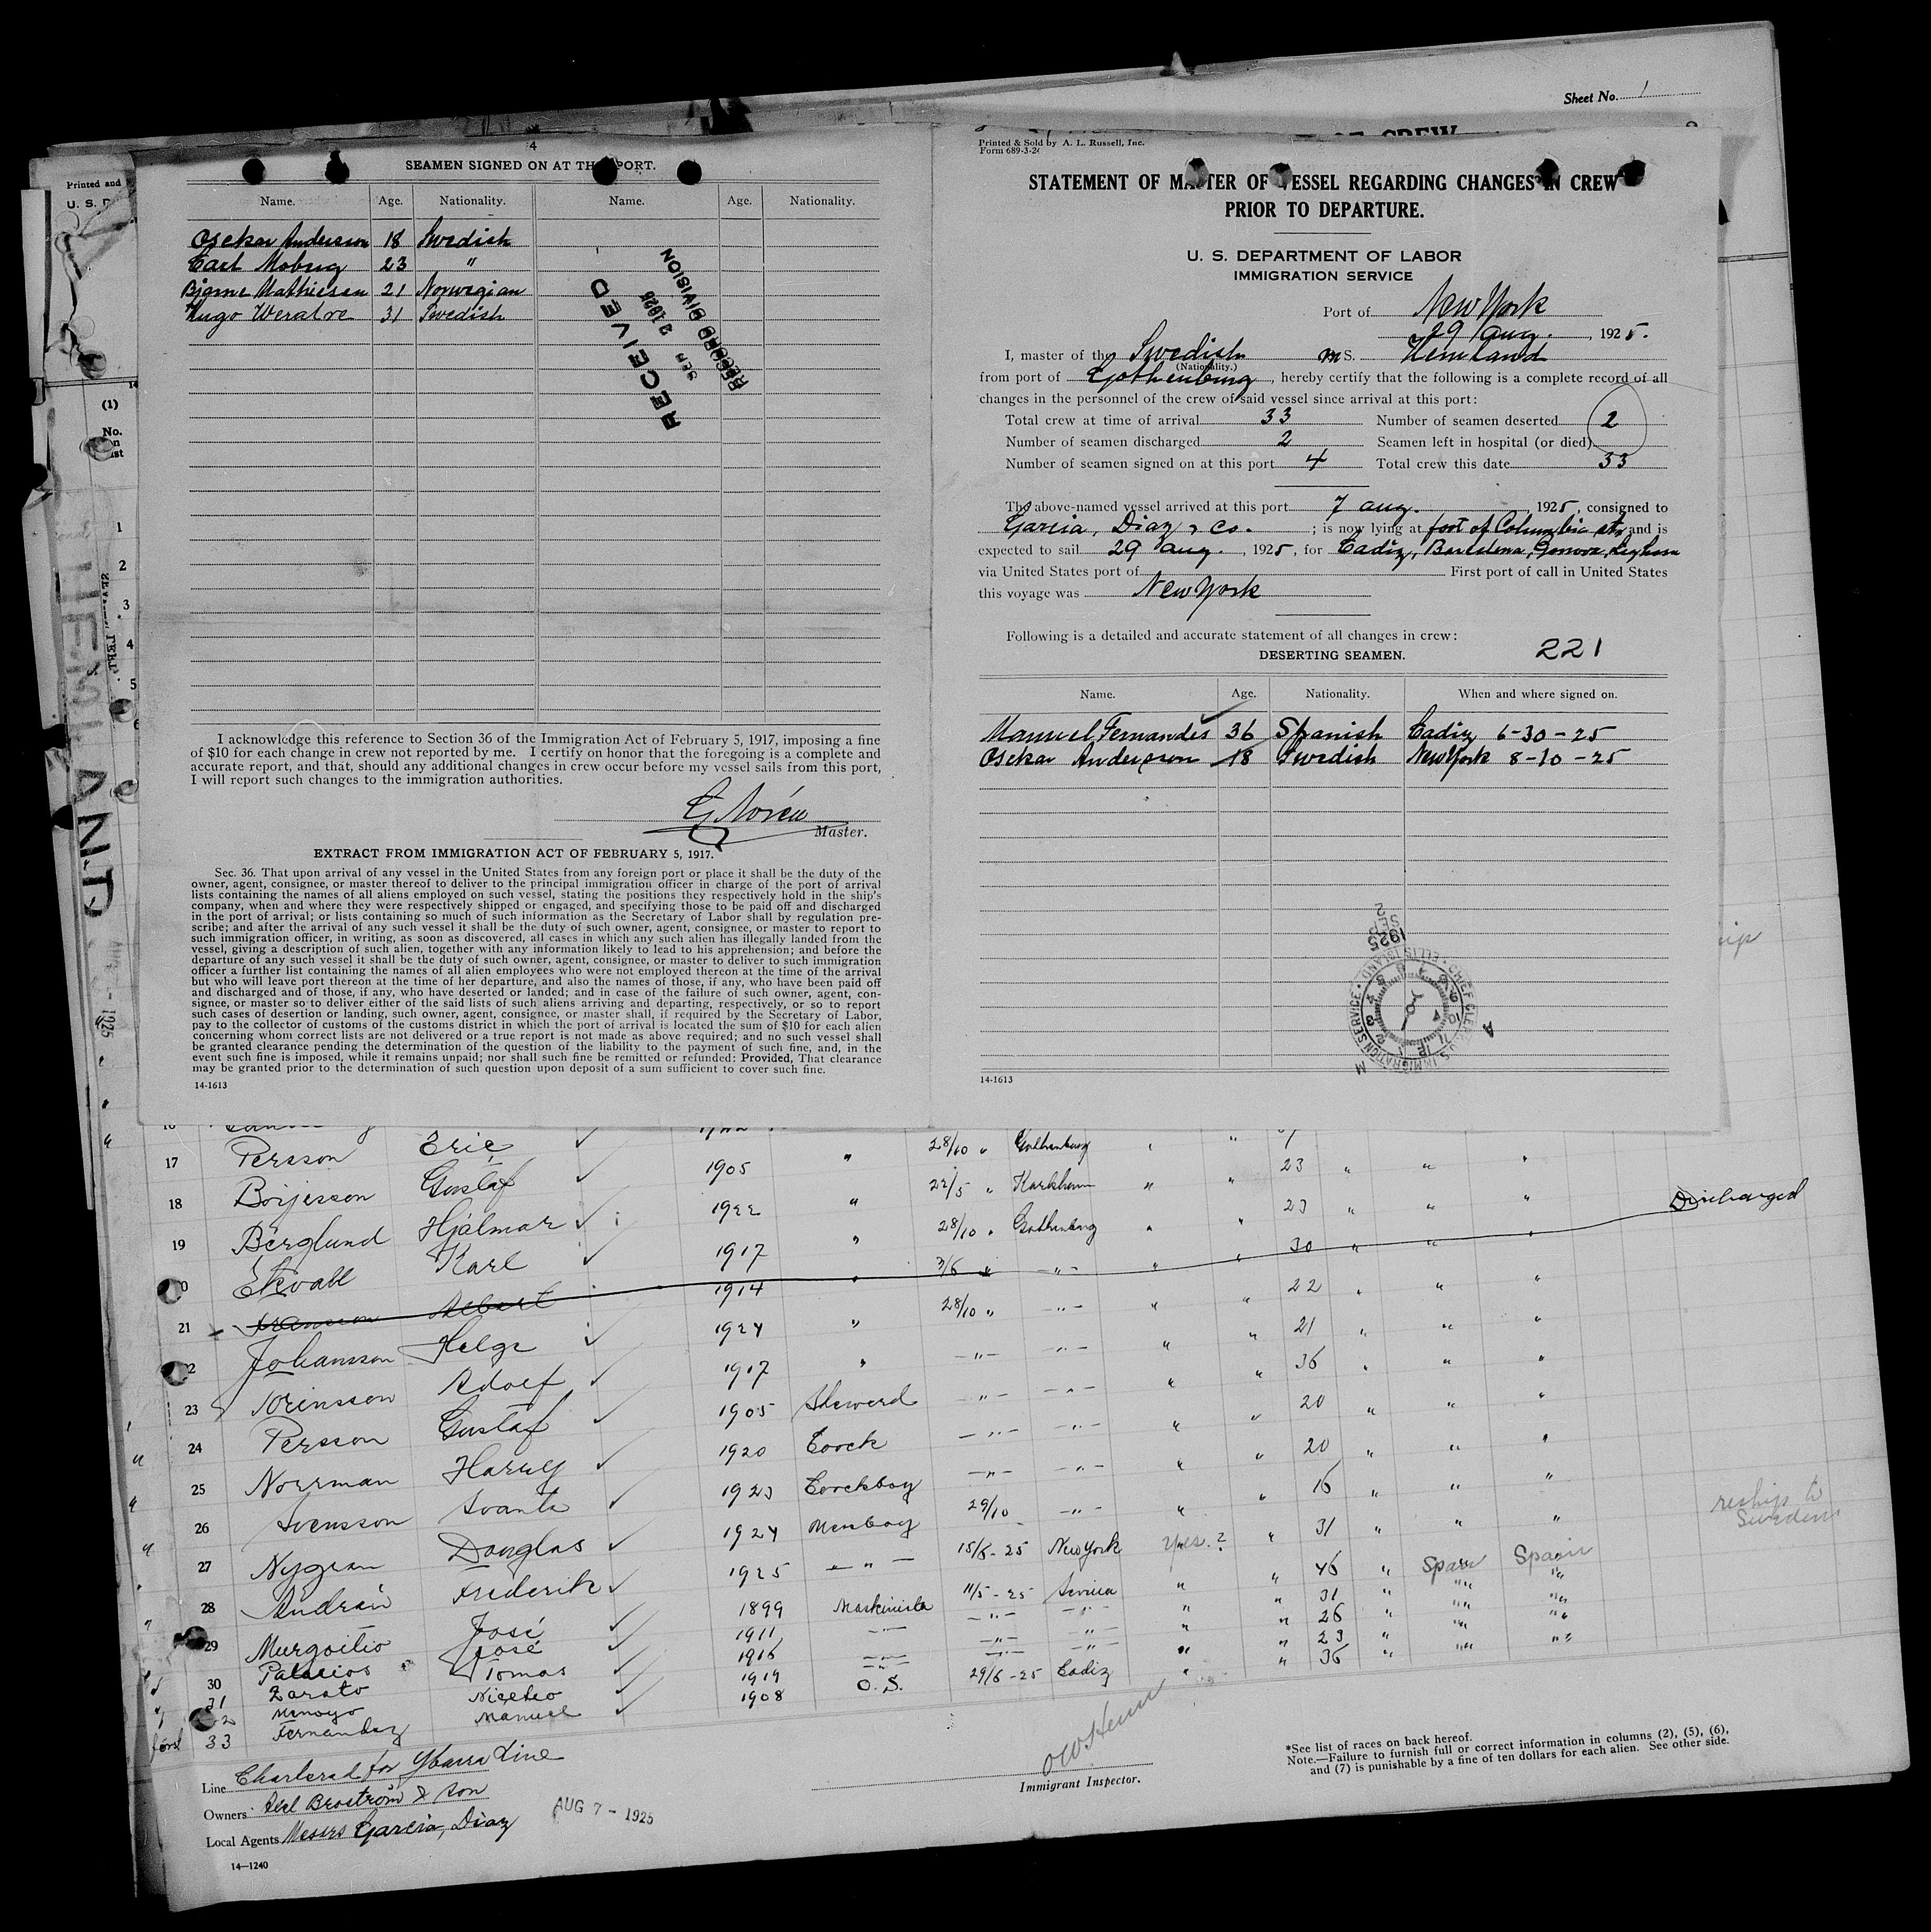 Sheet No. 1
Printed and
U. S. D
(1)
No.
1
2
3
4
5
HEMLAND
1925
4
SEAMEN SIGNED ON AT TH PORT.
Name. Age. Nationality. Name. Age. Nationality.
Osckar Anderson 18 Swedish
Carl Moberg 23 "
Bjarne Mathiesen 21 Norwegian
Hugo 31 Swedish
RECEIVED
SEP 2 1925
RECORD DIVISION
I acknowledge this reference to Section 36 of the Immigration Act of February 5, 1917, imposing a fine
of $10 for each change in crew not reported by me. I certify on honor that the foregoing is a complete and
accurate report, and that, should any additional changes in crew occur before my vessel sails from this port,
I will report such changes to the immigration authorities.
G Norén
Master.
EXTRACT FROM IMMIGRATION ACT OF FEBRUARY 5, 1917.
Sec. 36. That upon arrival of any vessel in the United States from any foreign port or place it shall be the duty of the
owner, agent, consignee, or master thereof to deliver to the principal immigration officer in charge of the port of arrival
lists containing the names of all aliens employed on such vessel, stating the positions they respectively hold in the ship's
company, when and where they were respectively shipped or engaged, and specifying those to be paid off and discharged
in the port of arrival; or lists containing so much of such information as the Secretary of Labor shall by regulation pre-
scribe; and after the arrival of any such vessel it shall be the duty of such owner, agent, consignee, or master to report to
such immigration officer, in writing, as soon as discovered, all cases in which any such alien has illegally landed from the
vessel, giving a description of such alien, together with any information likely to lead to his apprehension; and before the
departure of any such vessel it shall be the duty of such owner, agent, consignee, or master to deliver to such immigration
officer a further list containing the names of all alien employees who were not employed thereon at the time of the arrival
but who will leave port thereon at the time of her departure, and also the names of those, if any, who have been paid off
and discharged and of those, if any, who have deserted or landed; and in case of the failure of such owner, agent, con-
signee, or master so to deliver either of the said lists of such aliens arriving and departing, respectively, or so to report
such cases of desertion or landing, such owner, agent, consignee, or master shall, if required by the Secretary of Labor,
pay to the collector of customs of the customs district in which the port of arrival is located the sum of $10 for each alien
concerning whom correct lists are not delivered or a true report is not made as above required; and no such vessel shall
be granted clearance pending the determination of the question of the liability to the payment of such fine, and, in the
event such fine is imposed, while it remains unpaid; nor shall such fine be remitted or refunded: Provided, That clearance
may be granted prior to the determination of such question upon deposit of a sum sufficient to cover such fine.
14-1613
Printed & Sold by A. L. Russell, Inc.
Form 689-3-24
STATEMENT OF MASTER OF VESSEL REGARDING CHANGES IN CREW
PRIOR TO DEPARTURE.
U. S. DEPARTMENT OF LABOR
IMMIGRATION SERVICE
Port of New York
29 Aug. , 1925.
I, master of the Swedish mS. Hemland
(Nationality.)
from port of Gothenburg , hereby certify that the following is a complete record of all
changes in the personnel of the crew of said vessel since arrival at this port:
Total crew at time of arrival 33 Number of seamen deserted 2
Number of seamen discharged 2 Seamen left in hospital (or died)
Number of seamen signed on at this port 4 Total crew this date 33
The above-named vessel arrived at this port 7 aug. 1925, consigned to
Garcia, Diaz & Co. ; is now lying at foot of Columbia str, and is
expected to sail 29 aug. , 1925, for Cadiz, Barcelona, Genova, Leghorn
via United States port of First port of call in United States
this voyage was New York
Following is a detailed and accurate statement of all changes in crew:
DESERTING SEAMEN. 221
Name. Age. Nationality. When and where signed on.
Manuel Fernandes 36 Spanish Cadiz 6-30-25
Osckar Anderson 18 Swedish New York 8-10-25
1925 SEP 2
CHIEF CLERK U.S. IMMIGRATION SERVICE • ELLIS ISLAND
14-1613
17 Persson Eric 1905 " 28/10 " Gothenburg " " 23 " " "
18 Börjesson Gustaf 1922 " 22/5 " Karlshamn " " 23 " " "
19 Berglund Hjalmar 1917 " 28/10 " Gothenburg " " 30 " " " Discharged
Ekvall Karl 1914 " 3/6 " 22 " " "
21 Albert 1924 " 28/10 " 21 " " "
Johansson Helge 1917 " 36 " " "
23 Adolf 1905 Steward 20 " " "
24 Persson Gustaf 1920 Coock 20 " " "
25 Norrman Harry 1923 Coockboy 16 " " "
26 Svensson Svante 1924 Messboy 29/10 31 " " " reship to Sweden
27 Nygren Douglas 1925 15/6-25 New York Yes.? 46 " Spain Spain
28 Andrén Frederik 1899 Maskinista 11/5-25 31 " " "
29 Murgoitio José 1911 26 " " "
30 Palacios José 1916 23 " " "
31 Zarato Tomas 1919 36 "
Menoyo Niceteo 1908 O. S. 29/6-25 Cadiz
33 Fernandez Manuel
Line Chartered for Ybarra Line
Owners Axel Broström & Son
Local Agents Messrs Garcia, Diaz
AUG 7 - 1925
14—1240
Immigrant Inspector.
*See list of races on back hereof.
Note.—Failure to furnish full or correct information in columns (2), (5), (6),
and (7) is punishable by a fine of ten dollars for each alien. See other side.